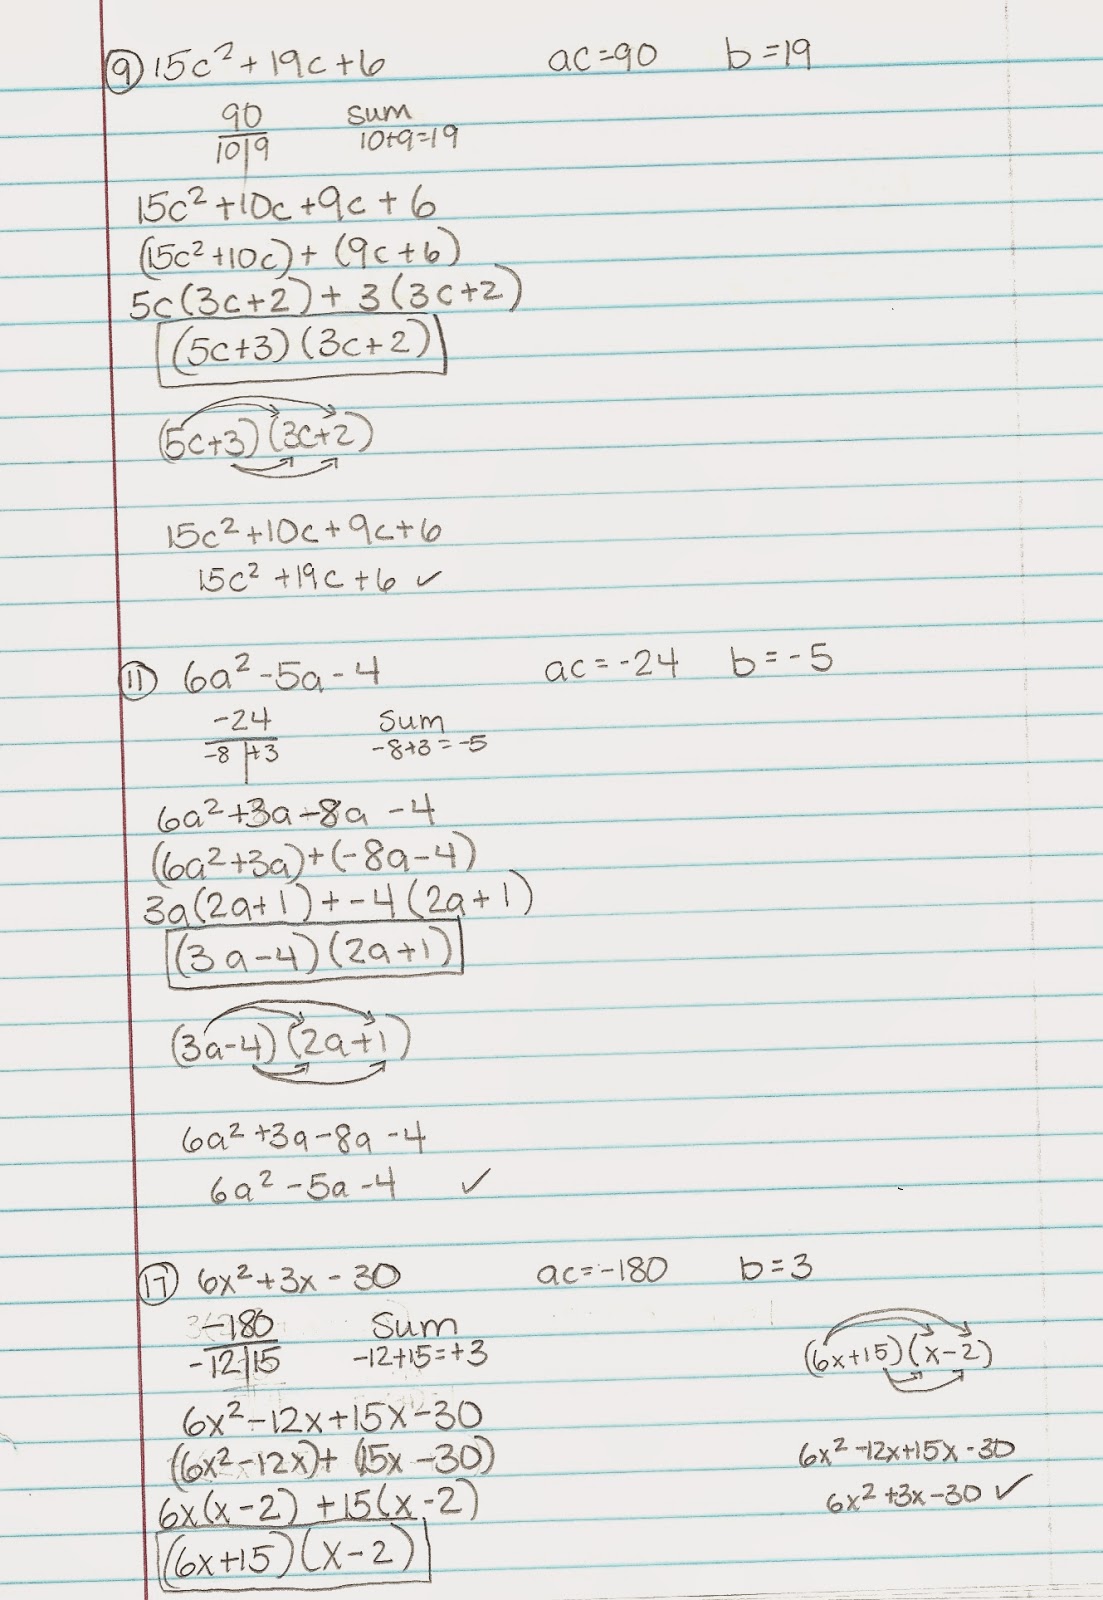 9 15c² + 19c + 6 ac = 90 b = 19
90 sum
10 | 9 10+9=19
15c² + 10c + 9c + 6
(15c² + 10c) + (9c + 6)
5c(3c+2) + 3(3c+2)
(5c+3)(3c+2)
(5c+3)(3c+2)
15c² + 10c + 9c + 6
15c² + 19c + 6 ✓
11 6a² - 5a - 4 ac = -24 b = -5
-24 sum
-8 | +3 -8+3 = -5
6a² + 3a - 8a - 4
(6a² + 3a) + (-8a - 4)
3a(2a+1) + -4(2a+1)
(3a-4)(2a+1)
(3a-4)(2a+1)
6a² + 3a - 8a - 4
6a² - 5a - 4 ✓
17 6x² + 3x - 30 ac = -180 b = 3
-180 sum
-12 | 15 -12+15=+3
(6x+15)(x-2)
6x² - 12x + 15x - 30
(6x² - 12x) + (15x - 30)
6x(x-2) + 15(x-2)
(6x+15)(x-2)
6x² - 12x + 15x - 30
6x² + 3x - 30 ✓